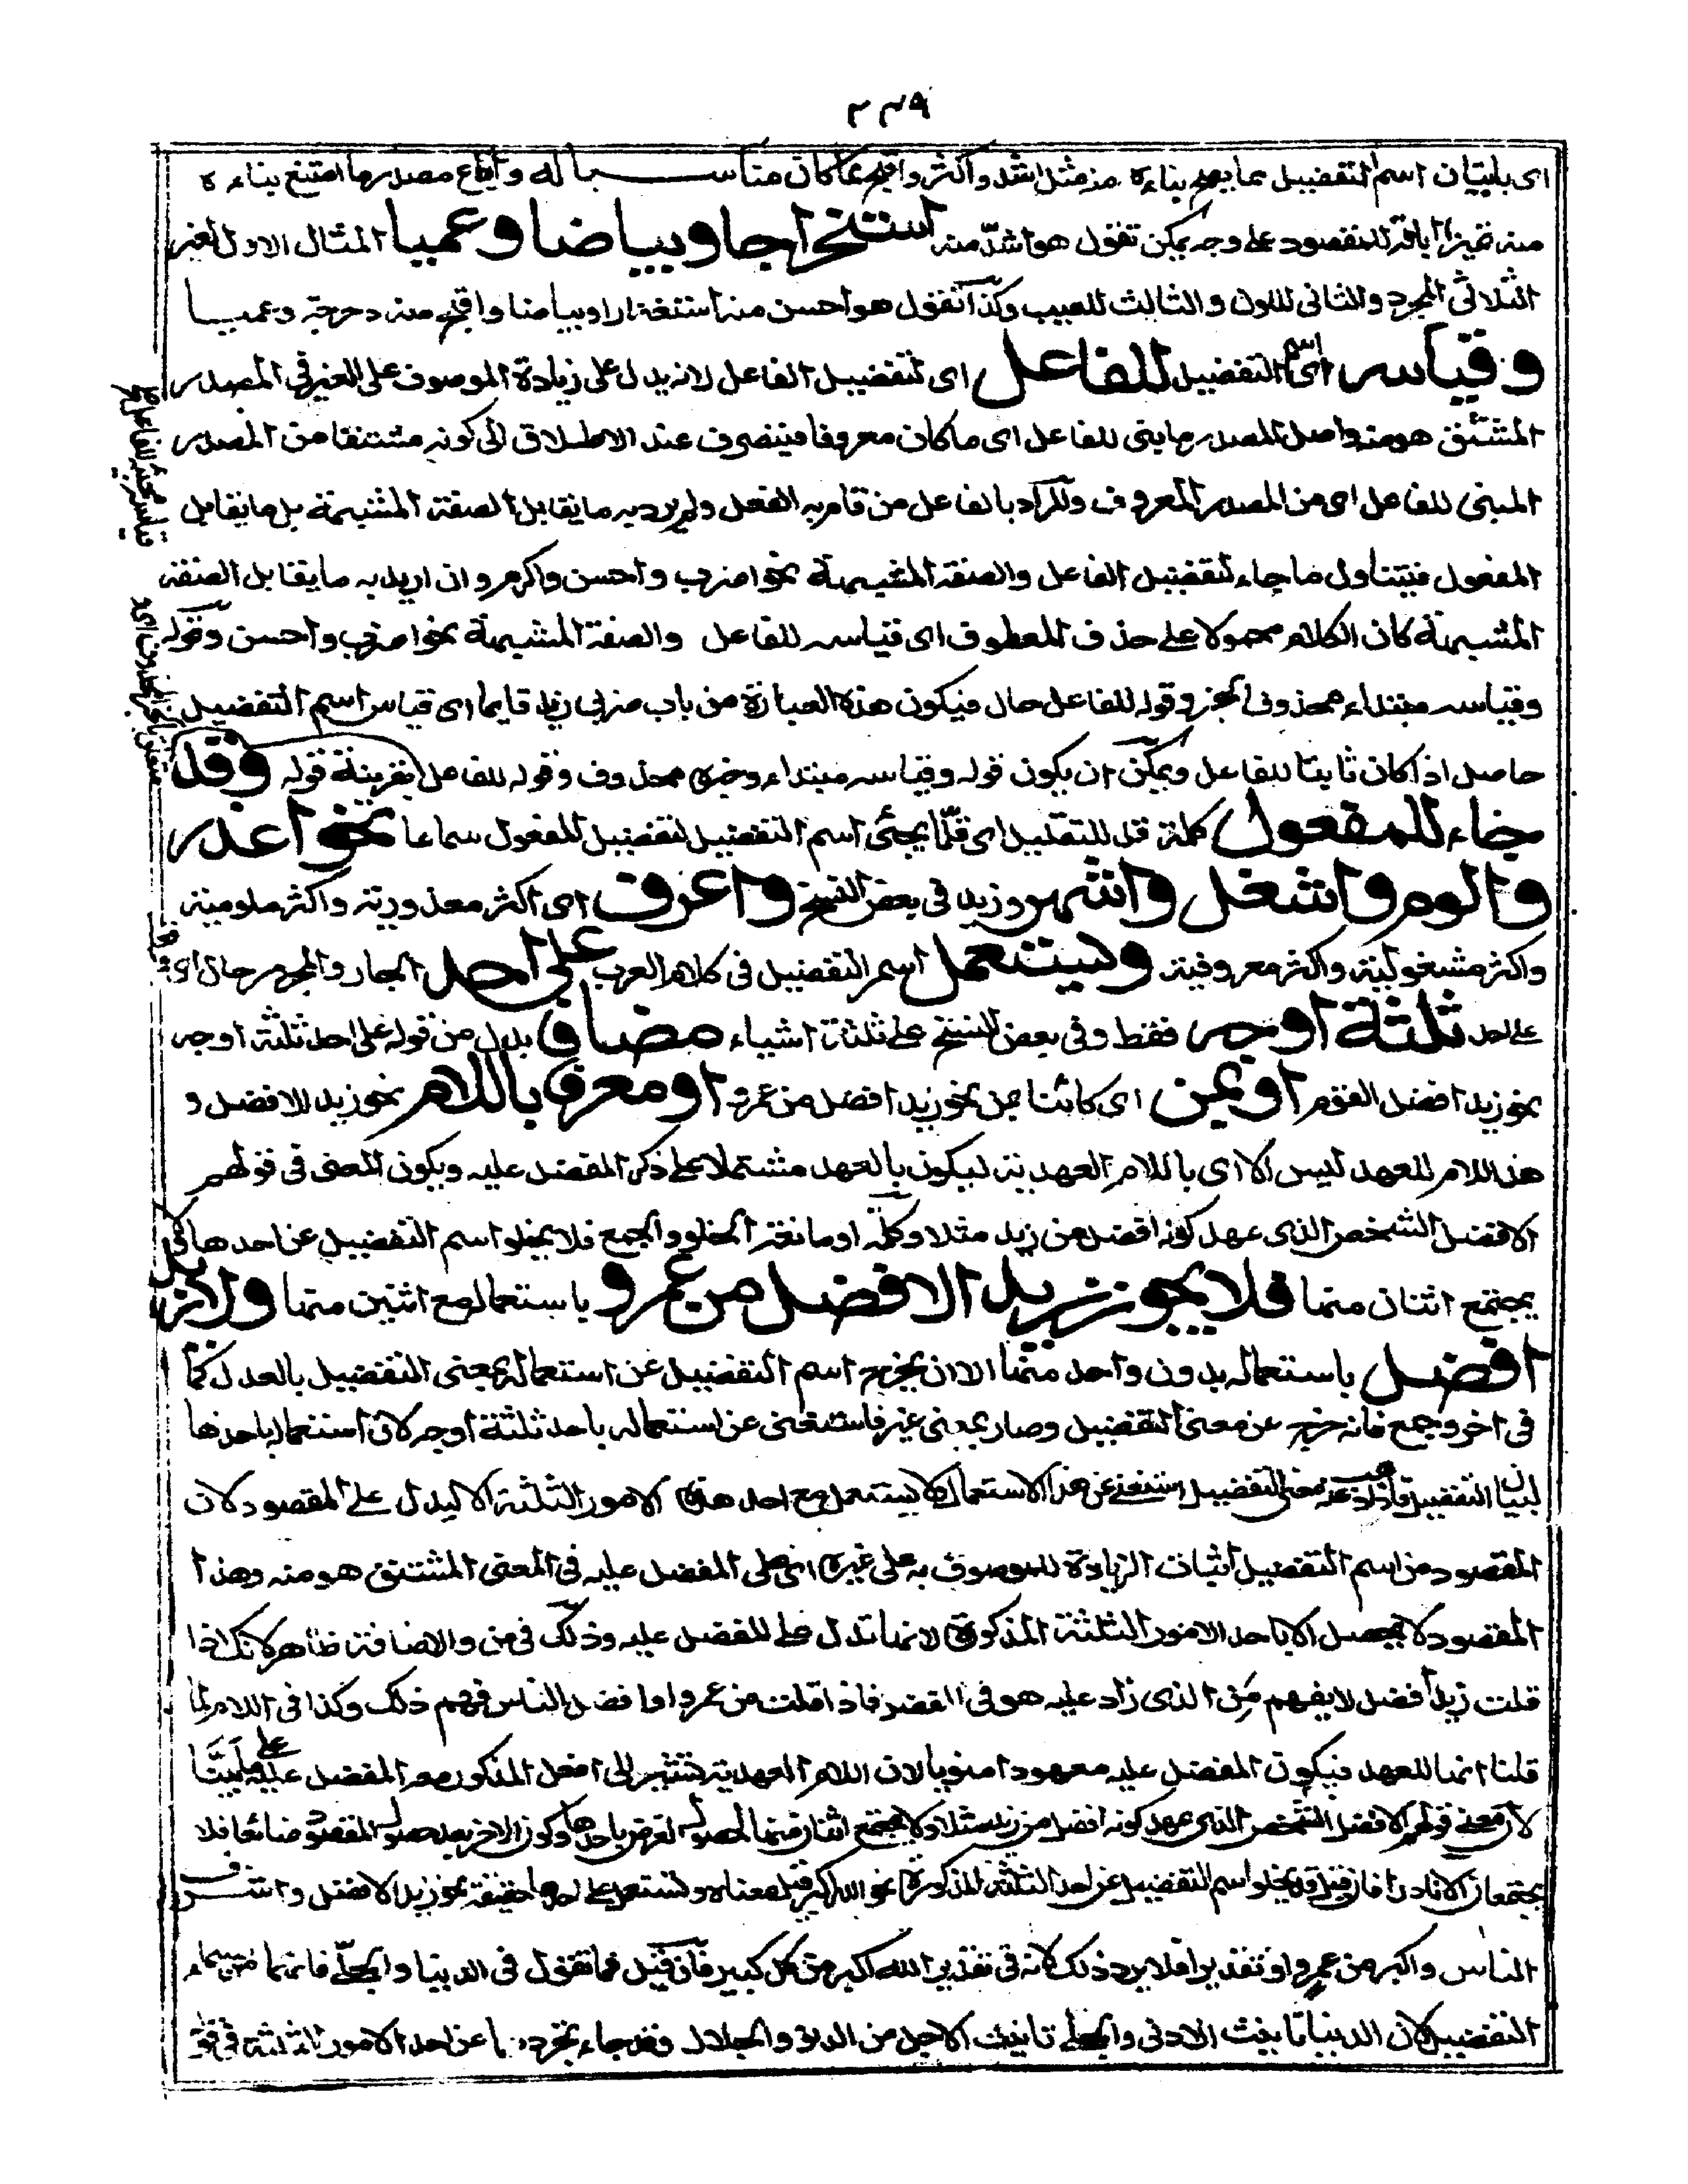 ٢٣٩
اى باتيان اسم التفضيل مما يصح بناءه من مثل اشد واكثر واقبح مما كان مناسبا له وايقاع مصدر ما امتنع بناءه
منه تميزا للمقصود على وجه يمكن تقول هو اشدّ منه استخراجا وبياضا وعميا المثال الاول لغير
الثلاثى المجرد والثانى للون والثالث للعيب وكذا تقول هو احسن منه استغفارا وبياضا واقبح منه دحرجة وعميا
وقياسه اى اسم التفضيل للفاعل اى لتفضيل الفاعل لانه يدل على زيادة الموصوف على الغير فى المصدر
المشتق هو منه واصل المصدر ما يبنى للفاعل اى ما كان معروفا فينصرف عند الاطلاق الى كونه مشتقا من المصدر
المبنى للفاعل اى من المصدر المعروف والمراد بالفاعل من قام به الفعل ولم يرد به ما يقابل الصفة المشبهة بل ما يقابل
المفعول فيتناول ما جاء لتفضيل الفاعل والصفة المشبهة نحو اضرب واحسن واكرم وان اريد به ما يقابل الصفة
المشبهة كان الكلام محمولا على حذف المعطوف اى قياسه للفاعل والصفة المشبهة نحو اضرب واحسن وقوله
وقياسه مبتداء محذوف الخبر وقوله للفاعل حال فيكون هذه العبارة من باب ضربى زيدا قايما اى قياس اسم التفضيل
حاصل اذا كان ثابتا للفاعل ويمكن ان يكون قوله وقياسه مبتداء وخبره محذوف وقوله للفاعل بقرينة قوله وقد
جاء للمفعول كلمة قد للتقليل اى قلّما يجئى اسم التفضيل لتفضيل المفعول سماعا نحو اعذر
والوم واشغل واشهر وزيد فى بعض النسخ واعرف اى اكثر معذورية واكثر ملومية
واكثر مشغولية واكثر معروفية ويستعمل اسم التفضيل فى كلام العرب على احد الجار والمجرور حال اى
على احد ثلثة اوجه فقط وفى بعض النسخ على ثلثة اشياء مضاف بدل من قوله على احد ثلثة اوجه
نحو زيد افضل القوم او بمن اى كائنا بمن نحو زيد افضل من عمرو او معرف باللام نحو زيد الافضل و
هذا اللام للعهد ليس الا اى باللام العهدية ليكون بالعهد مشتملا على ذكر المفضل عليه ويكون المعنى فى قولهم
الافضل الشخص الذى عهد كونه افضل من زيد مثلا وكلمة او مانعة الخلو والجمع فلا يخلو اسم التفضيل عن احدها ولا
يجتمع اثنان منها فلا يجوز زيد الافضل من عمرو باستعماله مع اثنين منها ولا زيد
افضل باستعماله بدون واحد منها الا ان يخرج اسم التفضيل عن استعماله بمعنى التفضيل بالعدل كما
فى اخر وجمع فانه خرج عن معنى التفضيل وصار بمعنى غير فاستغنى عن استعماله باحد ثلثة اوجه لان استعماله باحدها
لبيان التفضيل فاذا ذهب عنه معنى التفضيل استغنى عن هذا الاستعمال لا يستعمل مع احد هذه الامور الثلثة الا ليدل على المقصود لان
المقصود من اسم التفضيل اثبات الزيادة للموصوف به على غيره اى على المفضل عليه فى المعنى المشتق هو منه وهذا
المقصود لا يحصل الا باحد الامور الثلثة المذكورة لانها تدل على المفضل عليه وذلك فى من والاضافة ظاهر لانك اذا
قلت زيد افضل لا يفهم مِن الذى زاد عليه هو فى الفضل فاذا قلت من عمرو او افضل الناس فهم ذلك وكذا فى اللام لما
قلنا انها للعهد فيكون المفضل عليه معهودا منويا لان اللام العهدية تشير الى افعل المذكور معه المفضل عليه على ما بيّنّا
لان معنى قولهم الافضل الشخص الذى عهد كونه افضل من زيد مثلا ولا يجتمع اثنان منها لحصول الغرض باحدها وكون الاخر بعد حصول المقصود ضائعا فلا
يجتمعان الا نادرا فان قيل قد يخلو اسم التفضيل عن احد الثلثة المذكورة نحو الله اكبر قيل معناه ويستعمل على احدها حقيقة نحو زيد الافضل واشرف
الناس واكبر من عمرو او تقديرا فلا يرد ذلك لانه فى تقدير الله اكبر من كل كبير فان قيل فما تقول فى الدنيا والجلّى فانهما من اسماء
التفضيل لان الدنيا تانيث الادنى والجلى تانيث الاجل من الدنو والجلال وقد جاء بتجردهما عن احد الامور الثلثة فى قو